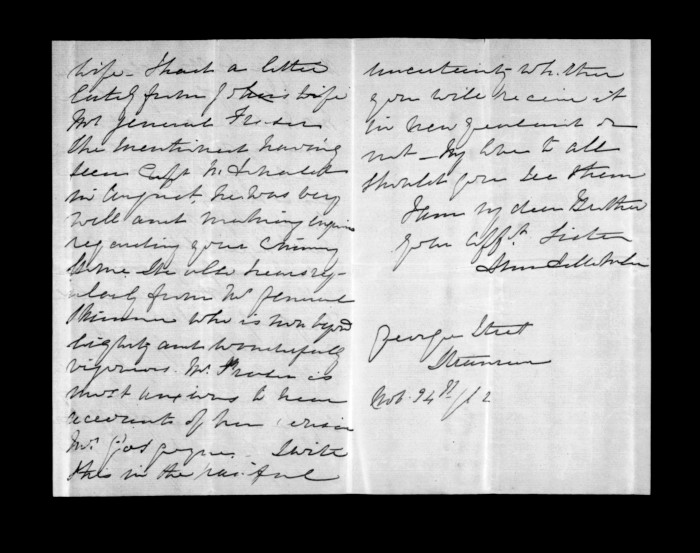 wife - I had a letter
lately from John's wife
Mrs General Fraser
She mentioned having
seen Capt
in August. he was very
well and making inquiries
regarding your coming
home. She also hears reg-
ularly from Mrs General
Skinner who is now beyond
eighty and wonderfully
vigorous. Mrs Fraser is
most anxious to hear
accounts of her cousin
Mrs Gascoyne. I write
this in the painful
uncertainty whether
you will receive it
in New Zealand or
not - My love to all
should you see them
I am my dear Brother
your affte Sister
George Street
Nov. 24th /62